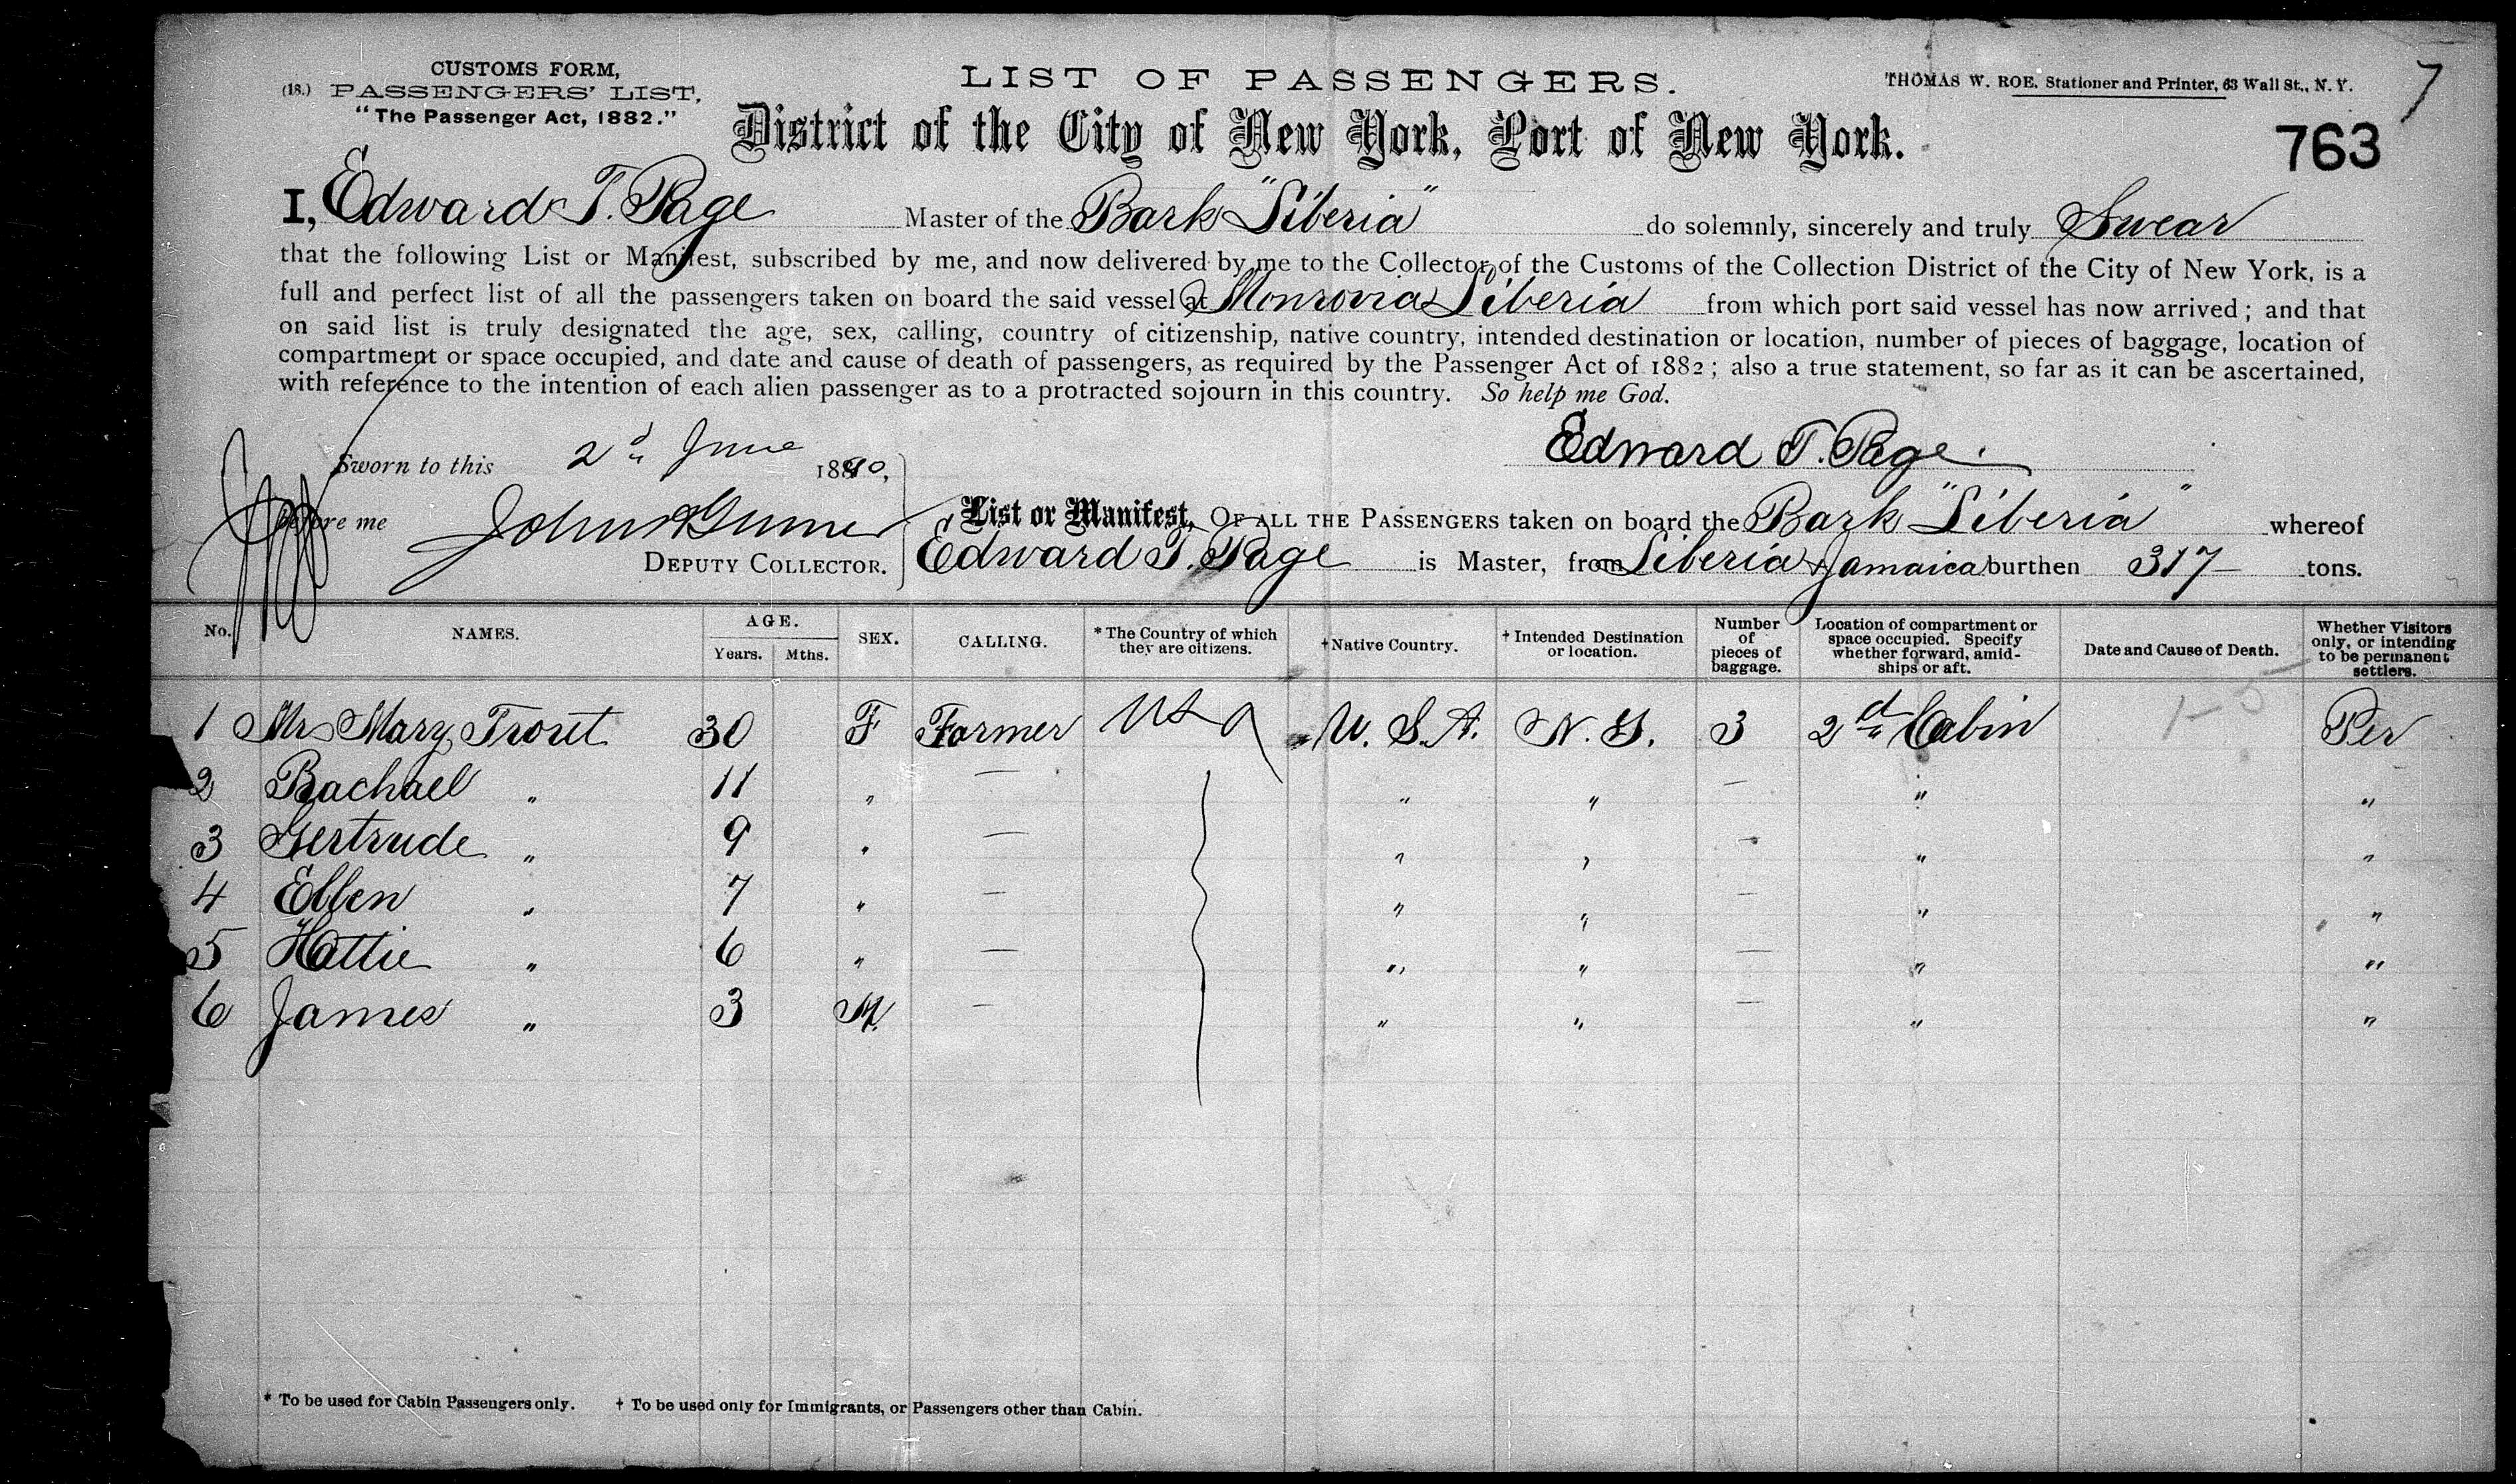 CUSTOMS FORM,
(18.) PASSENGERS' LIST,
"The Passenger Act, 1882."
LIST OF PASSENGERS.
THOMAS W. ROE, Stationer and Printer, 63 Wall St., N. Y.
7
District of the City of New York, Port of New York.
763
I, Edward T. Page Master of the Bark "Liberia" do solemnly, sincerely and truly Swear
that the following List or Manifest, subscribed by me, and now delivered by me to the Collector of the Customs of the Collection District of the City of New York, is a
full and perfect list of all the passengers taken on board the said vessel at Monrovia Liberia from which port said vessel has now arrived; and that
on said list is truly designated the age, sex, calling, country of citizenship, native country, intended destination or location, number of pieces of baggage, location of
compartment or space occupied, and date and cause of death of passengers, as required by the Passenger Act of 1882; also a true statement, so far as it can be ascertained,
with reference to the intention of each alien passenger as to a protracted sojourn in this country. So help me God.
Edward T. Page.
Sworn to this 2d June 1890,
Before me John
DEPUTY COLLECTOR.
List or Manifest, OF ALL THE PASSENGERS taken on board the Bark "Liberia" whereof
Edward T. Page is Master, from Liberia & Jamaica burthen 317 tons.
No. NAMES. AGE. Years. Mths. SEX. CALLING. * The Country of which they are citizens. † Native Country. † Intended Destination or location. Number of pieces of baggage. Location of compartment or space occupied. Specify whether forward, amidships or aft. Date and Cause of Death. Whether Visitors only, or intending to be permanent settlers.
1 Mrs Mary Trout 30 F Farmer USA U. S. A. N. Y. 3 2d Cabin Per
2 Rachael " 11 " — " " — " "
3 Gertrude " 9 " — " " — " "
4 Ellen " 7 " — " " — " "
5 Hattie " 6 " — " " — " "
6 James " 3 M. — " " — " "
* To be used for Cabin Passengers only. † To be used only for Immigrants, or Passengers other than Cabin.